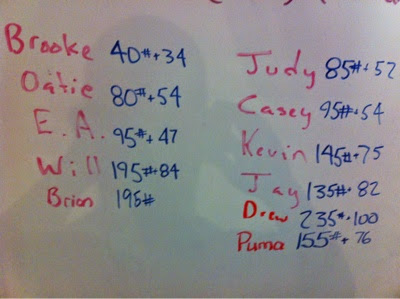 Brooke 40#+34
Oatie 80#+54
E.A. 95#+47
Will 195#+84
Brian 195#
Judy 85#+52
Casey 95#+54
Kevin 145#+75
Jay 135#+82
Drew 235#+100
Puma 155#+76